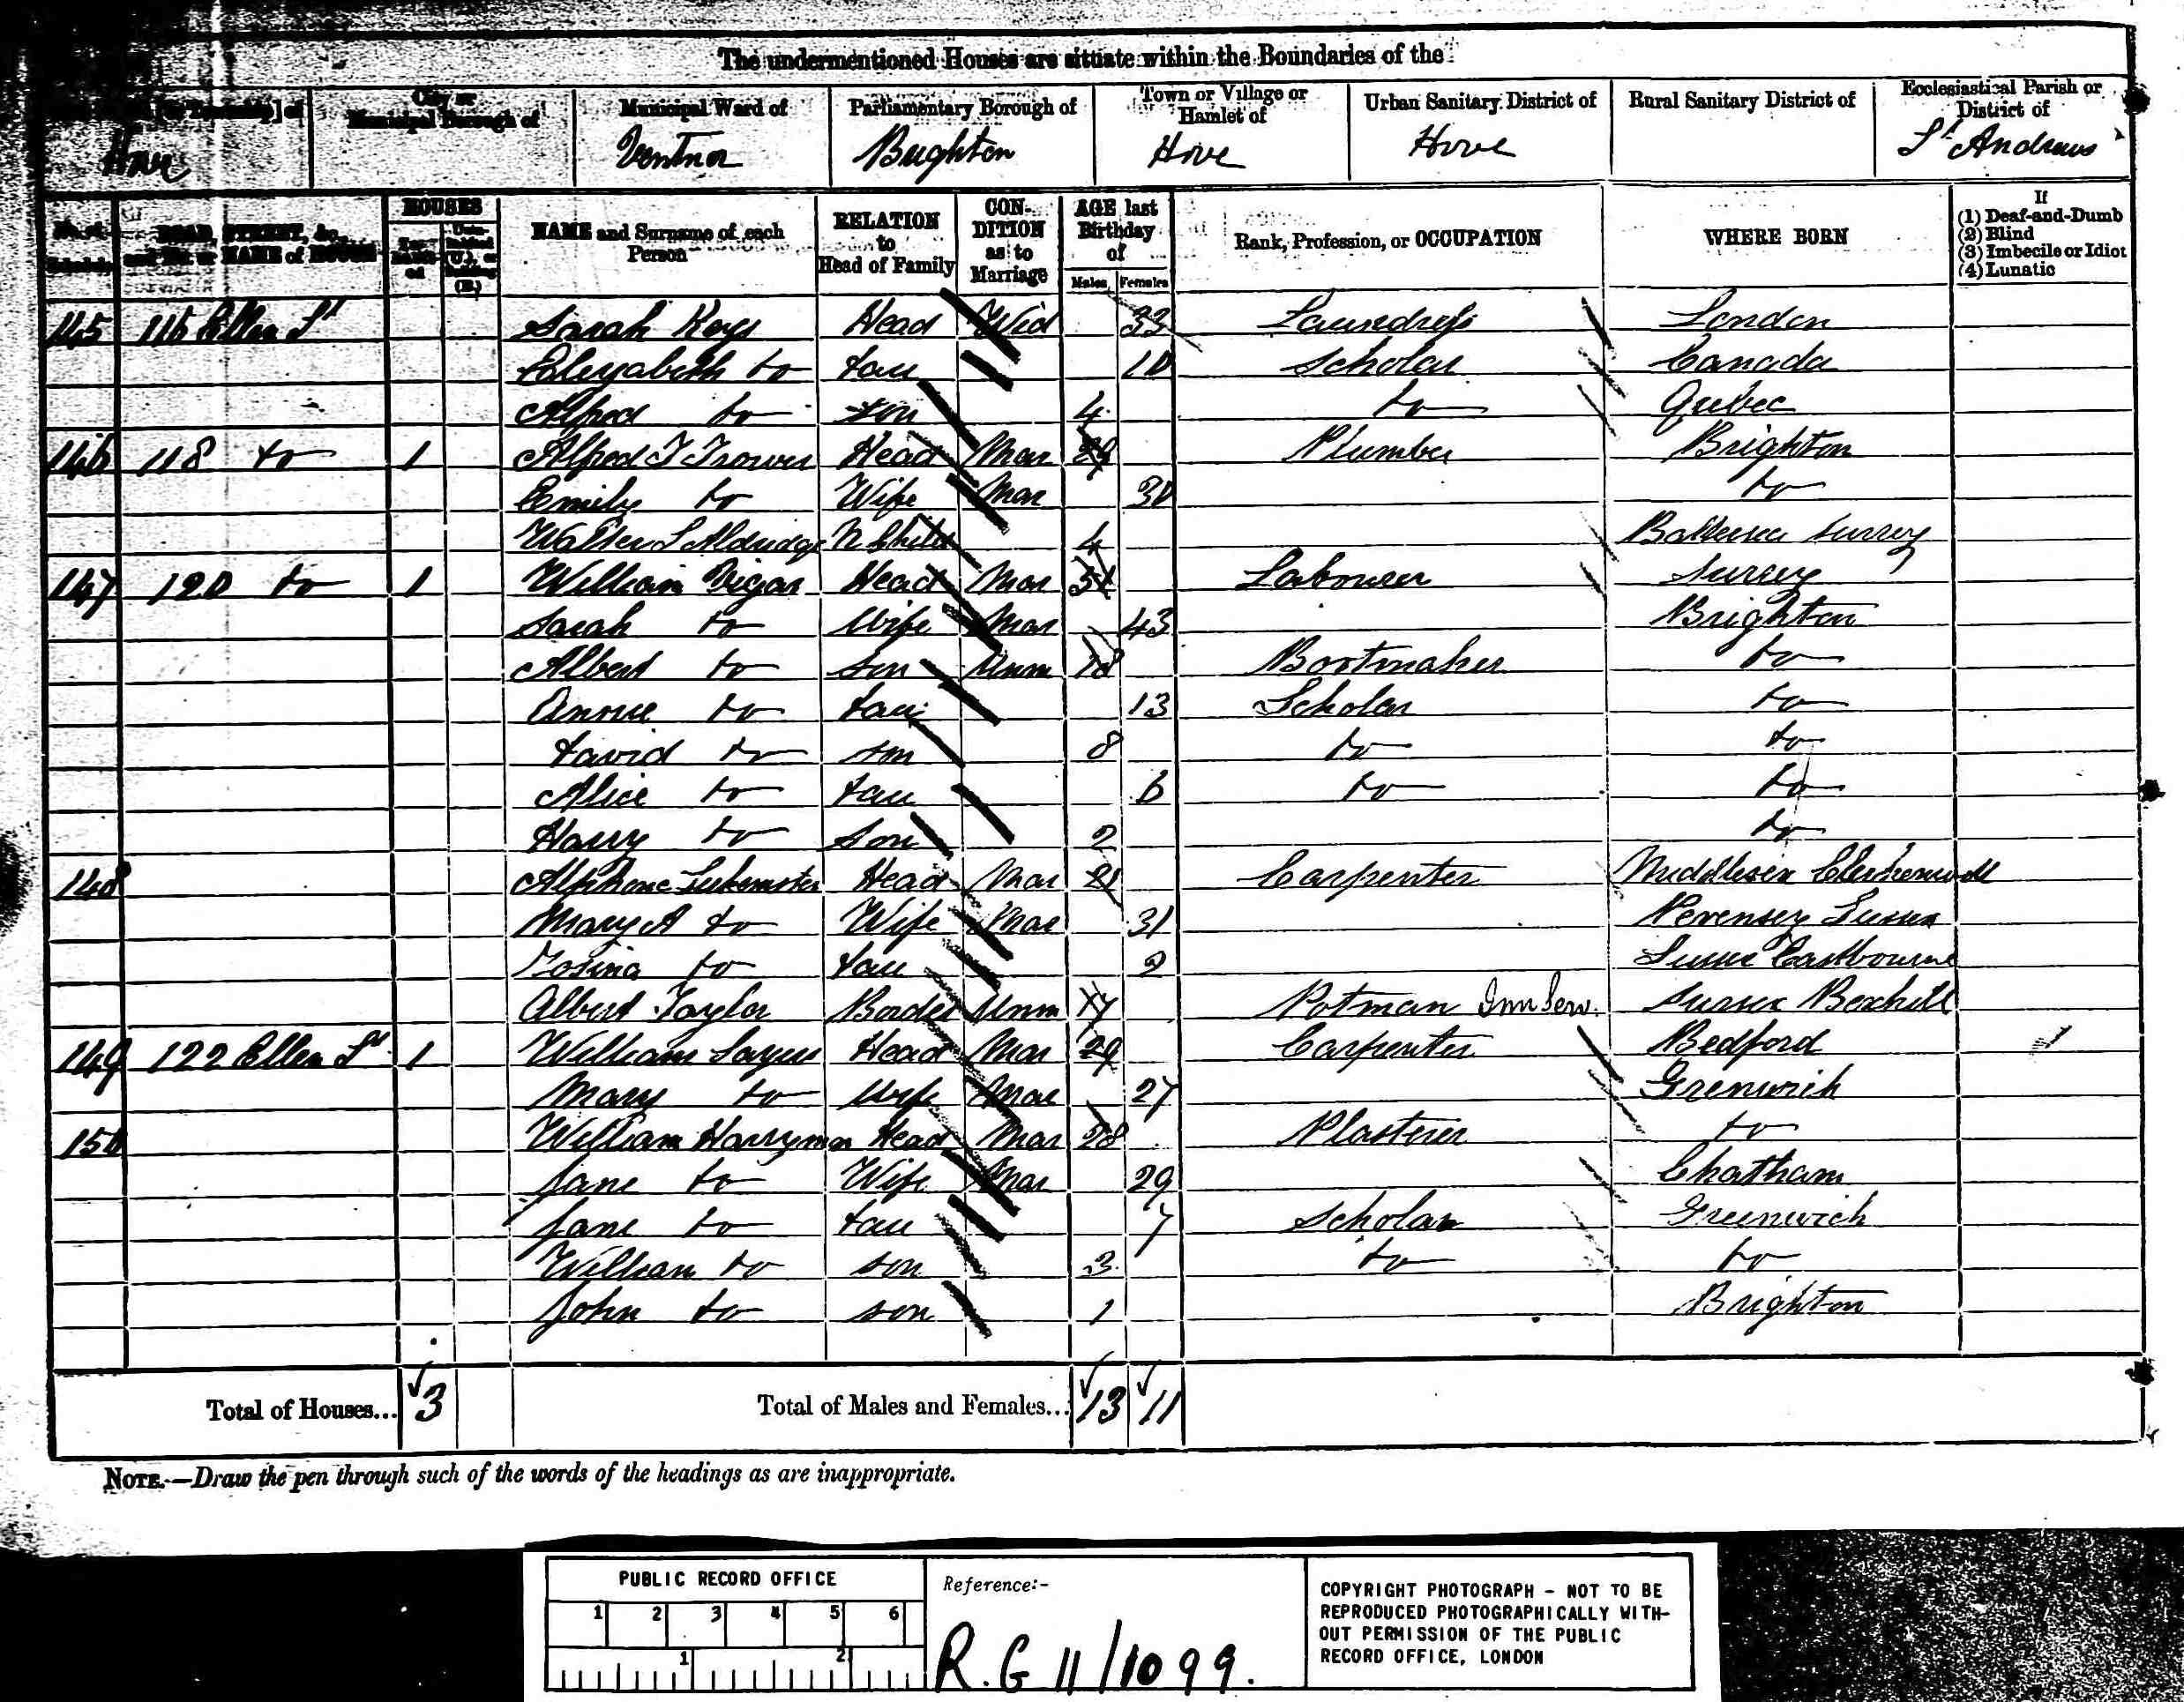 The undermentioned Houses are situate within the Boundaries of the
[or Township] of
City or Municipal Borough of
Municipal Ward of
Parliamentary Borough of
Town or Village or Hamlet of
Urban Sanitary District of
Rural Sanitary District of
Ecclesiastical Parish or District of
Hove
Ventnor
Brighton
Hove
Hove
St Andrews
No. of Schedule
ROAD, STREET, &c., and No. or NAME of HOUSE
HOUSES
NAME and Surname of each Person
RELATION to Head of Family
CONDITION as to Marriage
AGE last Birthday of
Males
Females
Rank, Profession, or OCCUPATION
WHERE BORN
If
(1) Deaf-and-Dumb
(2) Blind
(3) Imbecile or Idiot
(4) Lunatic
145 116 Ellen St Sarah Keys Head Wid 33 Laundress London
Elizabeth do dau 10 Scholar Canada
Alfred do son 4 do Quebec
146 118 do 1 Alfred J Trower Head Mar 29 Plumber Brighton
Emily do Wife Mar 30 do
Walter S Aldridge N Child 4 Battersea Surrey
147 120 do 1 William Head Mar 51 Labourer Surrey
Sarah do Wife Mar 43 Brighton
Albert do son Unm 18 Bootmaker do
Annie do dau 13 Scholar do
David do son 8 do do
Alice do dau 6 do do
Harry do Son 2 do
148 Head Mar 21 Carpenter Middlesex Clerkenwell
Mary A do Wife Mar 31 Pevensey Sussex
Rosina do dau 2 Sussex Eastbourne
Albert Taylor Border Unm 17 Potman Inn Serv. Sussex Bexhill
149 122 Ellen St 1 William Sayers Head Mar 29 Carpenter Bedford
Mary do Wife Mar 27 Grenwich
150 William Harryman Head Mar 28 Plasterer do
Jane do Wife Mar 29 Chatham
Jane do dau 7 Scholar Greenwich
William do son 3 do do
John do son 1 Brighton
Total of Houses... 3 Total of Males and Females... 13 11
NOTE.—Draw the pen through such of the words of the headings as are inappropriate.
PUBLIC RECORD OFFICE
1 2 3 4 5 6
1 2
Reference:-
R.G 11/1099.
COPYRIGHT PHOTOGRAPH - NOT TO BE
REPRODUCED PHOTOGRAPHICALLY WITH-
OUT PERMISSION OF THE PUBLIC
RECORD OFFICE, LONDON